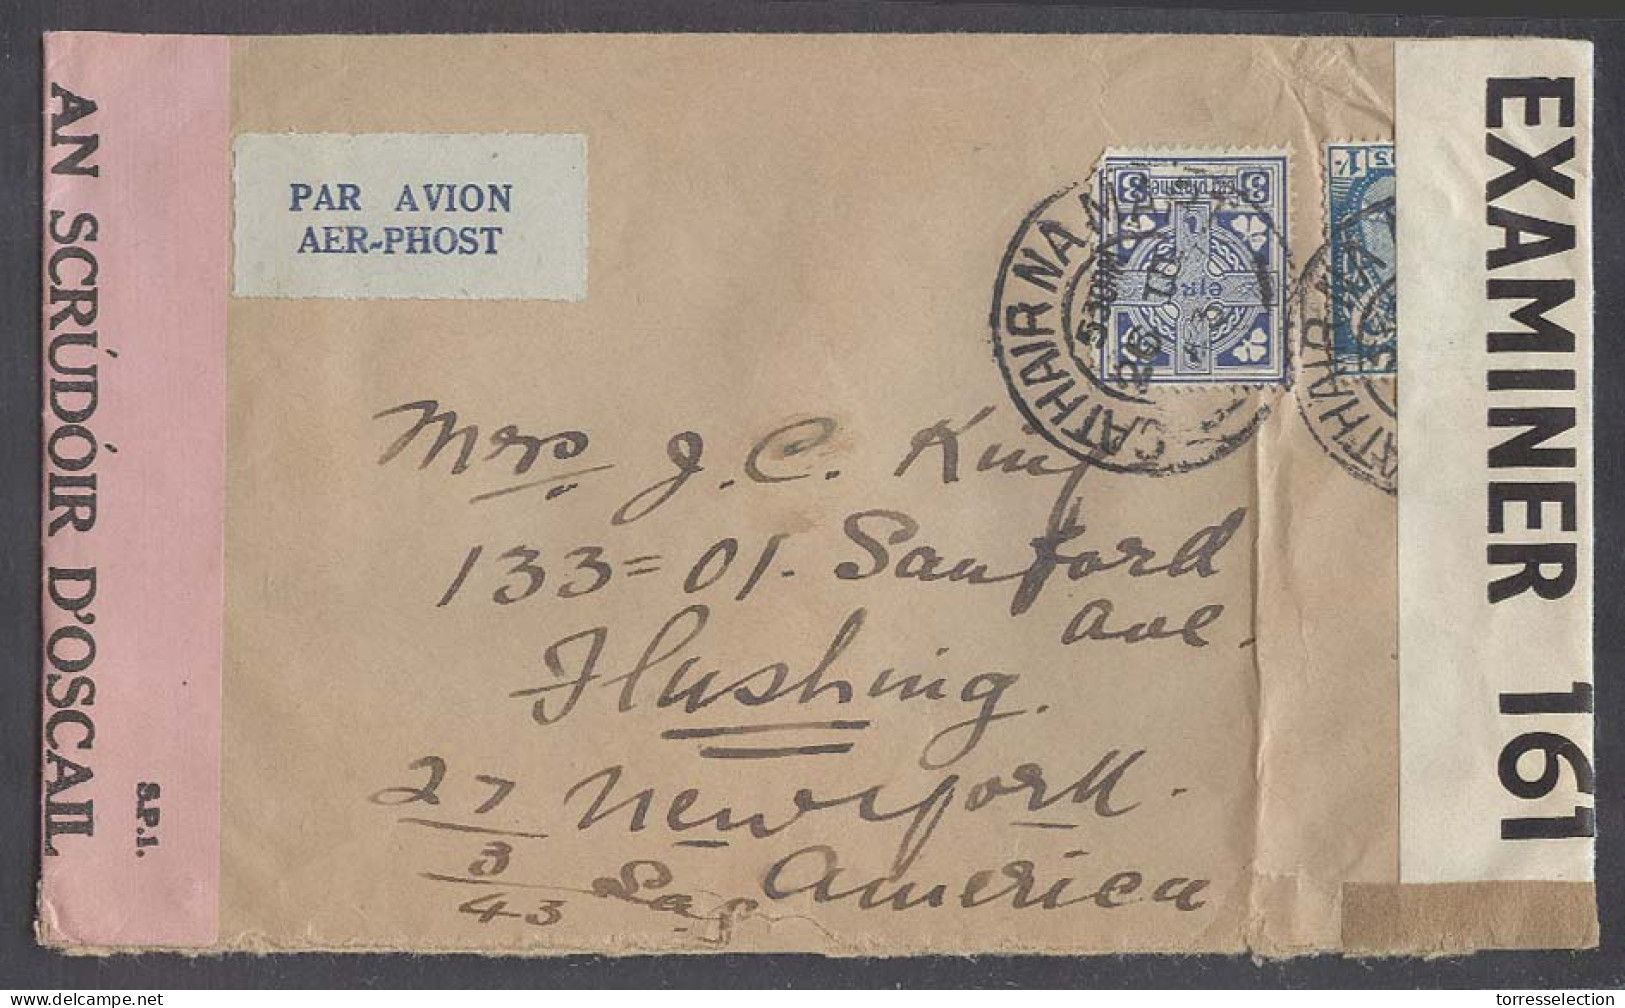 AN SCRÚDÓIR D'OSCAIL
S.P.1.
PAR AVION
AER-PHOST
CATHAIR NA MART
530PM
26 IUL
43
3 3
éIRe
1/-
CATHAIR NA
EXAMINER 161
Mrs J. C. King
133=01. Sanford
Ave.
Flushing.
27 New York.
3
43
America
torresselection